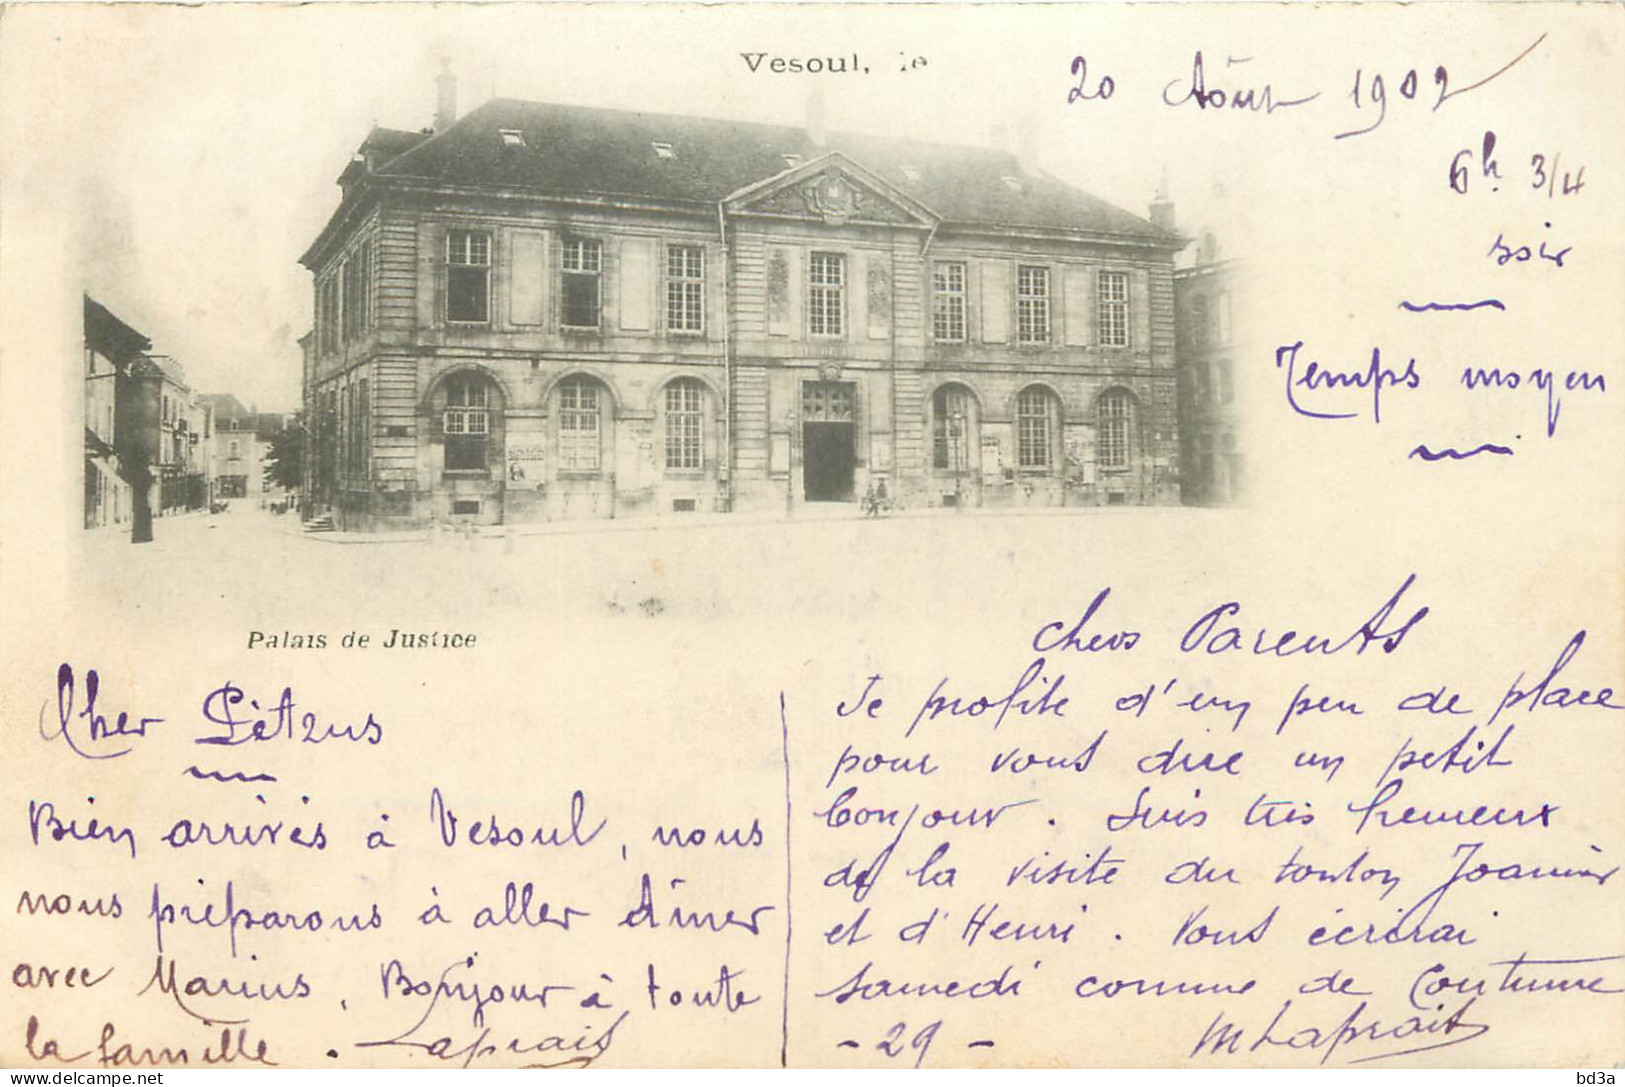 Vesoul, le
20 Aôut 1902
6h. 3/4
soir
Temps moyen
Palais de Justice
Cher Pètrus
Bien arrivés à Vesoul, nous
nous préparons à aller dîner
avec Marius, Bonjour à toute
la famille. Laprait
chers Parents
Je profite d'un peu de place
pour vous dire un petit
bonjour. Suis très heureux
de la visite du tonton Joannier
et d'Henri. Vous écrirai
samedi comme de Coutume
- 29 - M Laprait
delcampe.net
bd3a